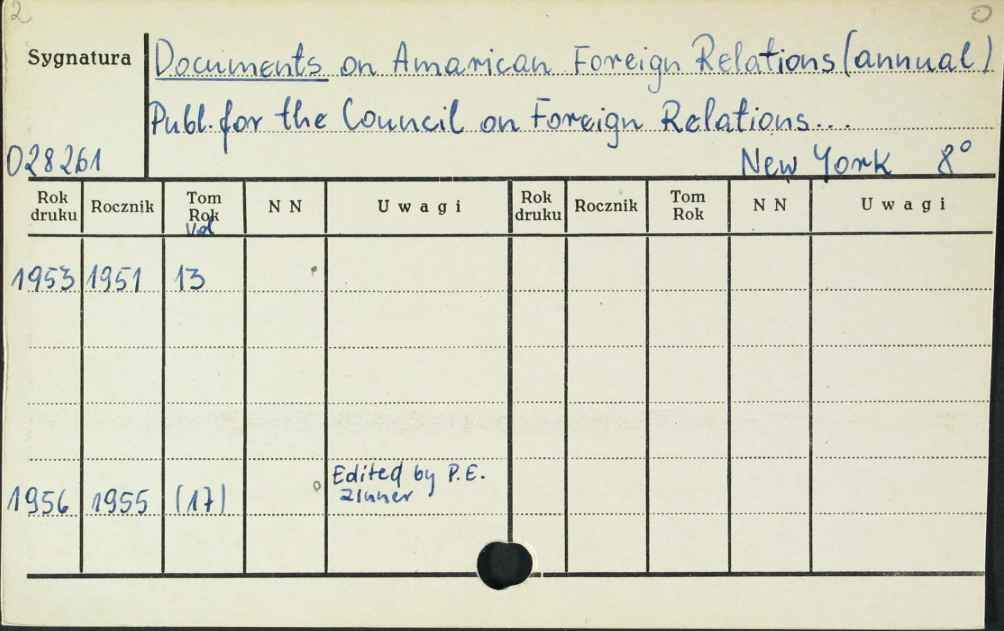 2 0
Sygnatura Documents on Amarican Foreign Relations (annual)
Publ. for the Council on Foreign Relations...
028261 New York 8°
Rok druku Rocznik Tom Rok Vol N N Uwagi Rok druku Rocznik Tom Rok N N Uwagi
1953 1951 13
Edited by P.E.
1956 1955 (17) Zinner